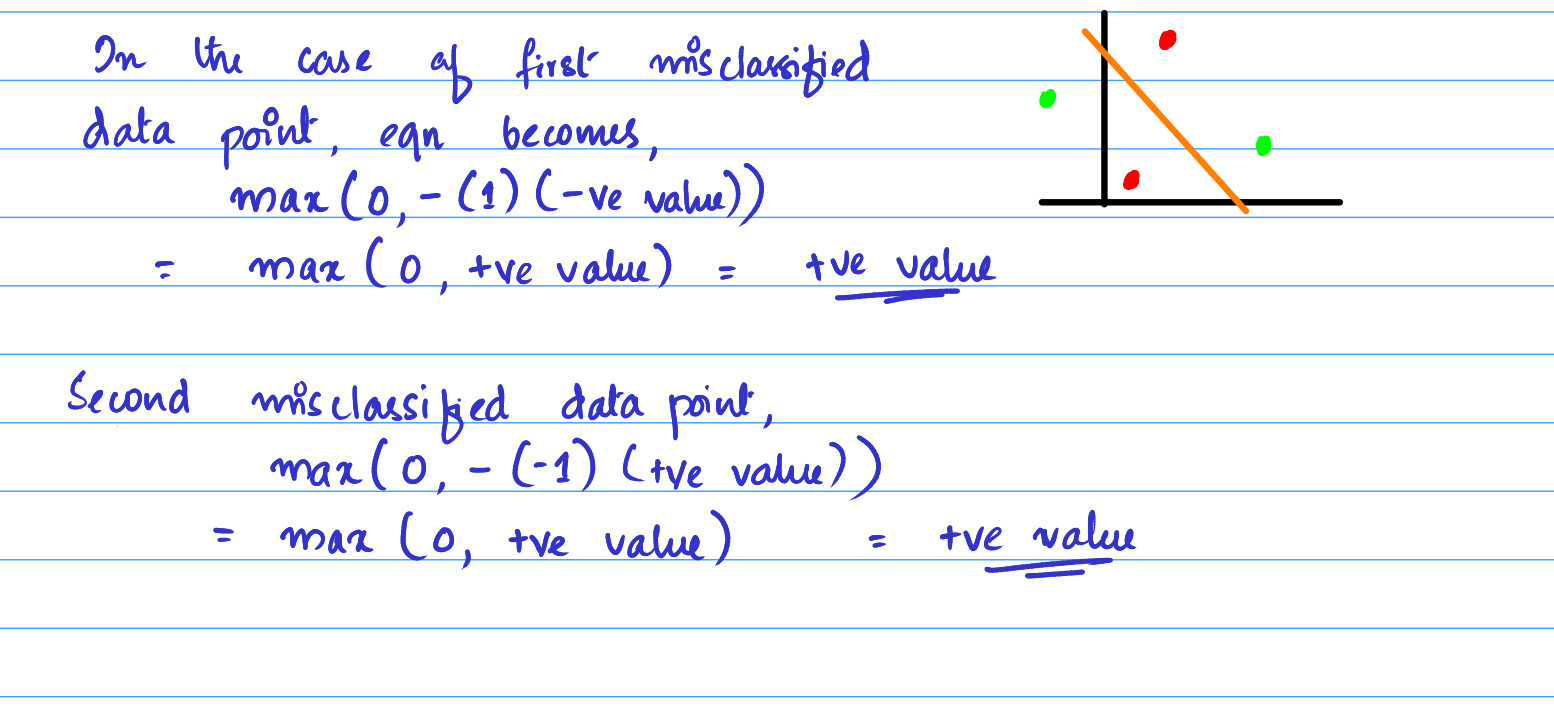 In the case of first misclassified
data point, eqn becomes,
max(0, -(1)(-ve value))
= max(0, +ve value) = +ve value
Second misclassified data point,
max(0, -(-1)(+ve value))
= max(0, +ve value) = +ve value